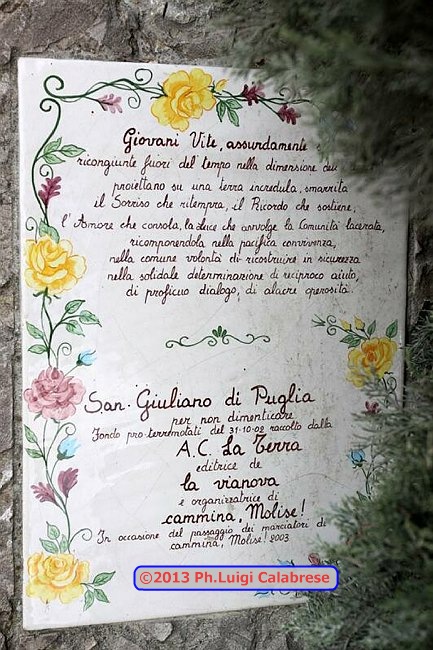 Giovani Vite, assurdamente
ricongiunte fuori del tempo nella dimensione
proiettano su una terra incredula, smarrita
il Sorriso che ritempra, il Ricordo che sostiene,
l'Amore che consola, la Luce che avvolge la Comunità lacerata,
ricomponendola nella pacifica convivenza,
nella comune volontà di ricostruire in sicurezza
nella solidale determinazione di reciproco aiuto,
di proficuo dialogo, di alacre operosità.
San Giuliano di Puglia
per non dimenticare
Fondo pro terremotati del 31-10-02 raccolto dalla
A.C. La Terra
editrice de
la vianova
e organizzatrice di
cammina, Molise!
In occasione del passaggio dei marciatori di
cammina, Molise! 2003
©2013 Ph.Luigi Calabrese